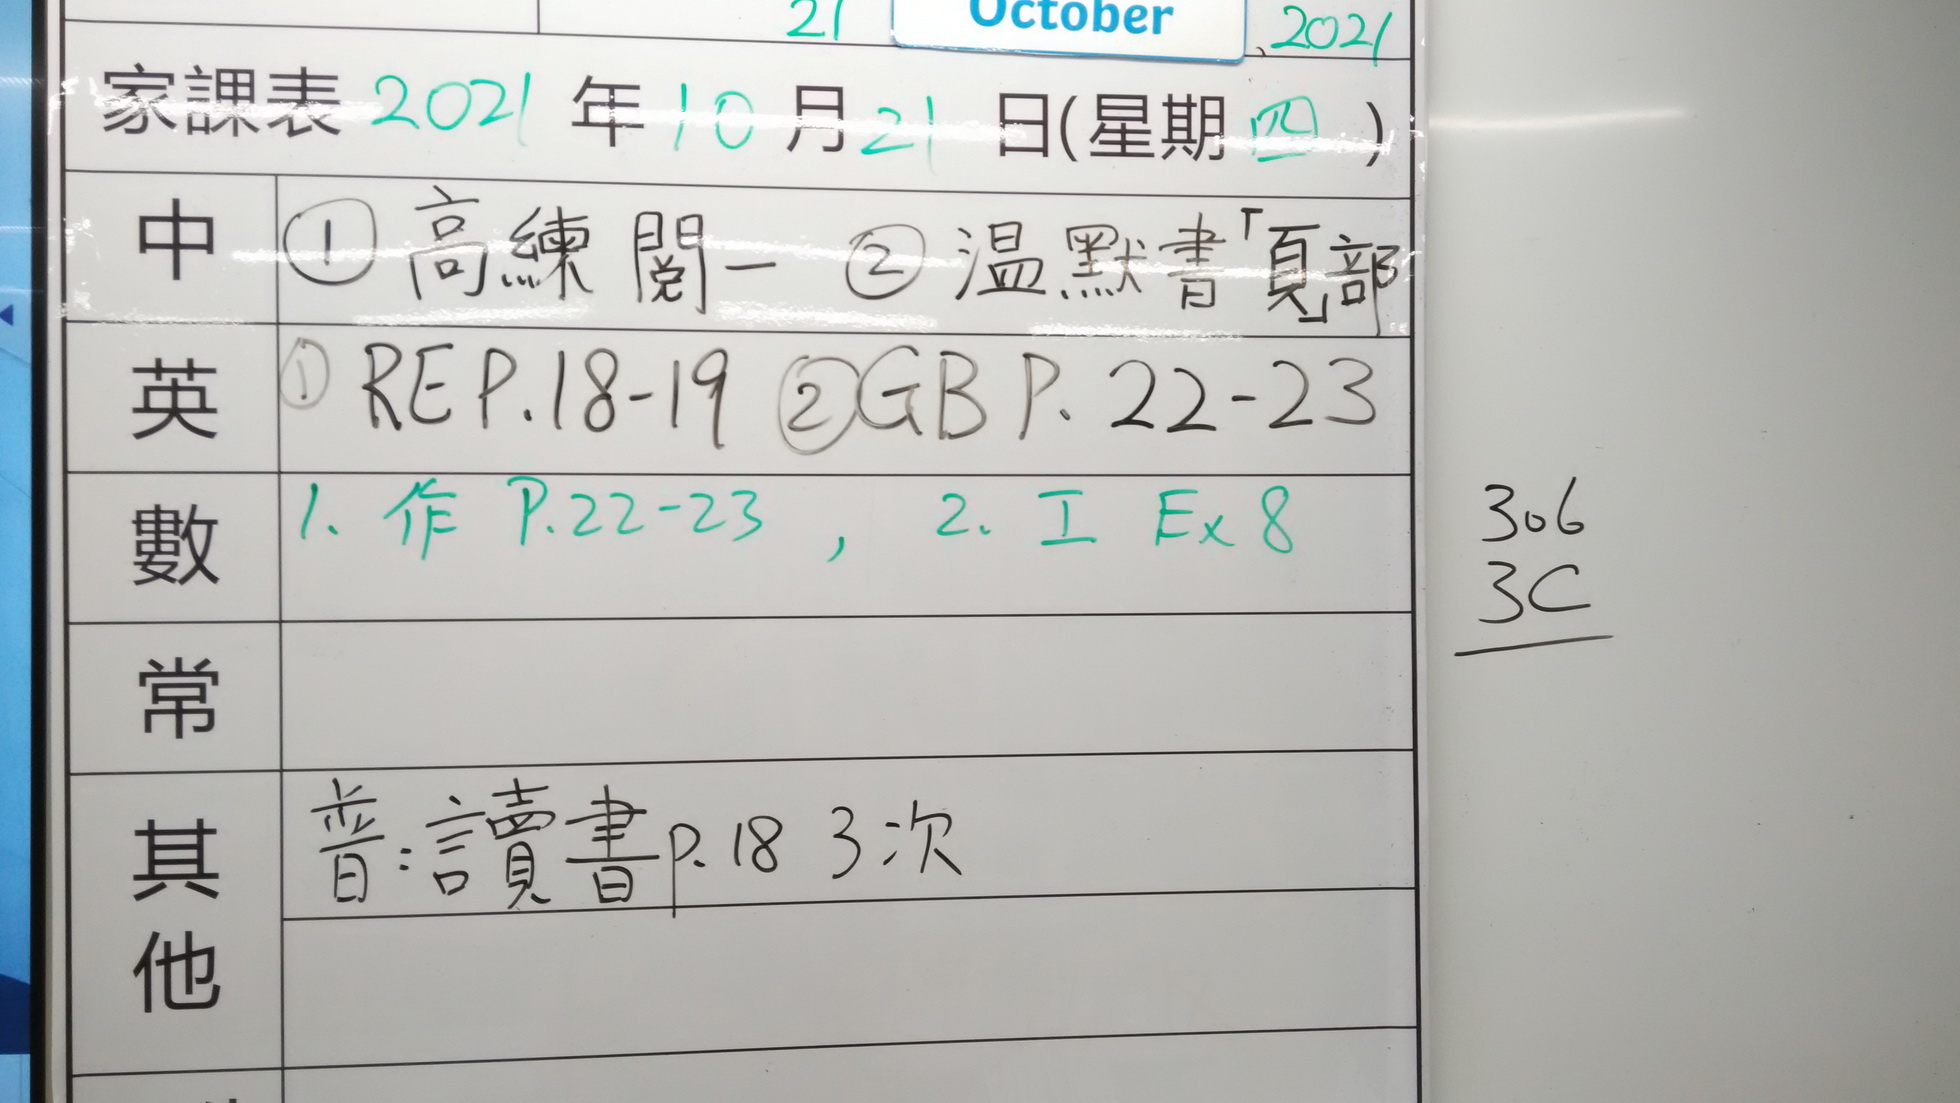 21 October , 2021
家課表 2021 年 10 月 21 日(星期 四 )
中 ① 高練閱一 ② 溫默書「頁」部
英 ① RE P.18-19 ② GB P. 22-23
數 1. 作 P.22-23 , 2. 工 Ex 8
306
3C
常
其他 普:讀書p.18 3次